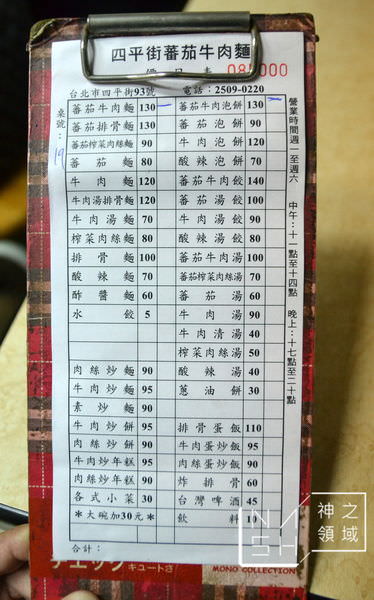 四平街蕃茄牛肉麵
價目表 085000
台北市四平街93號 電話：2509-0220
桌號： 19
蕃茄牛肉麵 130
蕃茄排骨麵 130
蕃茄榨菜肉絲麵 90
蕃茄麵 80
牛肉麵 120
牛肉湯排骨麵 120
牛肉湯麵 70
榨菜肉絲麵 80
排骨麵 100
酸辣麵 70
酢醬麵 60
水餃 5
肉絲炒麵 95
牛肉炒麵 95
素炒麵 90
牛肉炒餅 95
肉絲炒餅 90
牛肉炒年糕 95
肉絲炒年糕 90
各式小菜 30
＊大碗加30元＊
合計：
蕃茄牛肉泡餅 130
蕃茄泡餅 90
牛肉泡餅 120
酸辣泡餅 70
蕃茄牛肉餃 140
蕃茄湯餃 100
牛肉湯餃 90
酸辣湯餃 80
蕃茄牛肉湯 100
蕃茄榨菜肉絲湯 70
蕃茄湯 60
牛肉湯 90
牛肉清湯 40
榨菜肉絲湯 50
酸辣湯 40
蔥油餅 30
排骨蛋飯 110
牛肉蛋炒飯 95
肉絲蛋炒飯 90
炸排骨 60
台灣啤酒 45
飲料
營業時間週一至週六 中午：十一點至十四點 晚上：十七點至二十點
神之領域
チェック キュートさ
MONO COLLECTION